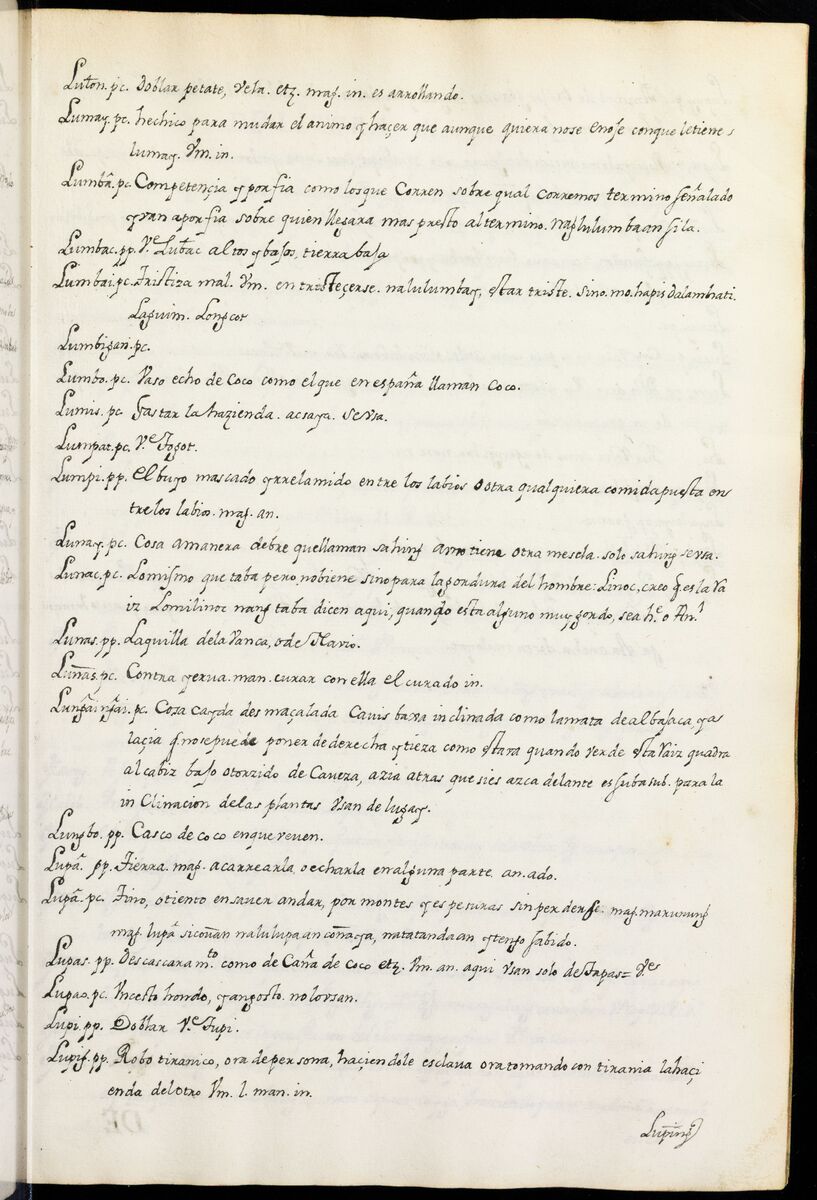 Luton. pc. Doblar petate, vela. etz. mag. in. es arrollando.
Lumay. pc. hechiço para mudar el animo y haçer que aunque quiera nose enose conque letiene s
lumay. Vm. in.
Lumbã. pc. Competençia y porfia como los que Corren sobre qual corremos termino señalado
y van aporfia sobre quien llegara mas presto al termino. naglulumbaan sila.
Lumbac. pp. Vᵉ Lubac altos y bajos, tierra baja
Lumbai. pc. Tristiza mal. Vm. entristeçerse. nalulumbay, estar triste. sino. mo. hapis dalamhati.
Laguim. Longcot
Lumbigan. pc.
Lumbo. pc. Vaso echo de Coco como el que en españa llaman Coco.
Lumis. pc. gastar la hazienda. acsaya. sersa.
Lumpat. pc. Vᵉ Togot.
Lumpi. pp. el buyo mascado y rrelamido entre los labios o otra qualquiera comida puesta en
tre los labios. mag. an.
Lunay. pc. Cosa amanera debre quellaman sahing ano tiene otra mescla. solo sahing sersa.
Lunac. pc. Lomismo que taba pero, nobiene sino para lagordura del hombre: Linoc, creo q̃. es la Ra
iz Lomilinoc nang taba dicen aqui, quando esta alguno muy gordo, sea hᵉ. o Anˡ
Lunas. pp. Laquilla dela vanca, o de Navio.
Lunas. pc. Contra yerua. man. curar con ella el curado in.
Lungaingai. pc. Cosa cayda desmaçalada Cauisbaxa inclinada como lamata de albahaca, y as
laçia q̃ nose puede poner de derecha y tieza como estara quando verde esta Raiz quadra
al cabiz bajo o torzido de Caveza, azia atras que si es azca delante es subasub. para la
inClinacion delas plantas Usan de lugay.
Lungbo. pp. Casco de coco enque veven.
Lupã. pp. Tierra. mag. acarrearla, o echarla en alguna parte. an. ado.
Lupã. pc. Tino, o tiento en saver andar, por montes y espesuras sin perderse. mag marunung
mag. lupã siconan nalulupaan conaya, natatandaan y tengo sabido.
Lupas. pp. Descascaramᵗᵒ como de Caña de Coco etz. Vm. an. aqui Usan solo de Tapas= Vᵉˢ
Lupao. pc. Vncesto hondo, y angosto. nolo Usan.
Lupi. pp. Doblar Vᵉ Tupi.
Lupig. pp. Robo tiranico, ora de persona, haçiendole esclava ora tomando con tirania la haçi
enda del otro Vm. l. man. in.
Luping